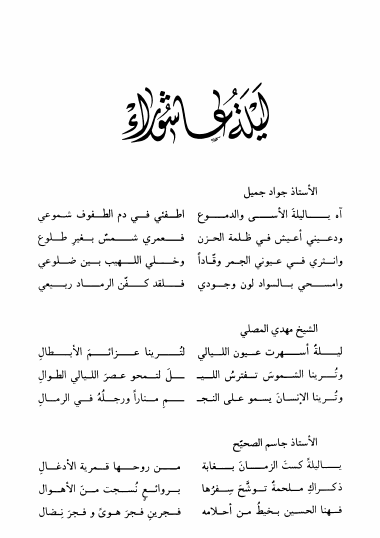 ليلة عاشوراء
الأستاذ جواد جميل
آه يا ليلة الأسى والدموع اطفئي في دم الطفوف شموعي
ودعيني أعيش في ظلمة الحزن فعمري شمسٌ بغير طلوع
وانثري في عيوني الجمر وقّاداً وخلي اللهيب بين ضلوعي
وامسحي بالسواد لون وجودي فلقد كفّن الرماد ربيعي
الشيخ مهدي المصلي
ليلةٌ أسهرت عيون الليالي لتُرينا عزائمَ الأبطالِ
وتُرينا الشموسَ تفترسُ الليـ ـلَ لتمحو عصرَ الليالي الطوالِ
وتُرينا الإنسانَ يسمو على النجـ ـمِ مناراً ورجلُهُ في الرمالِ
الأستاذ جاسم الصحيّح
يا ليلةً كستَ الزمانَ بغابة من روحها قمرية الأدغالِ
ذكراكِ ملحمةٌ توشّحَ سِفرُها بروائعٍ نُسجت منَ الأهوال
فهنا الحسين يخيطُ من أحلامه فجرينِ فجرَ هوىً و فجرَ نِضال